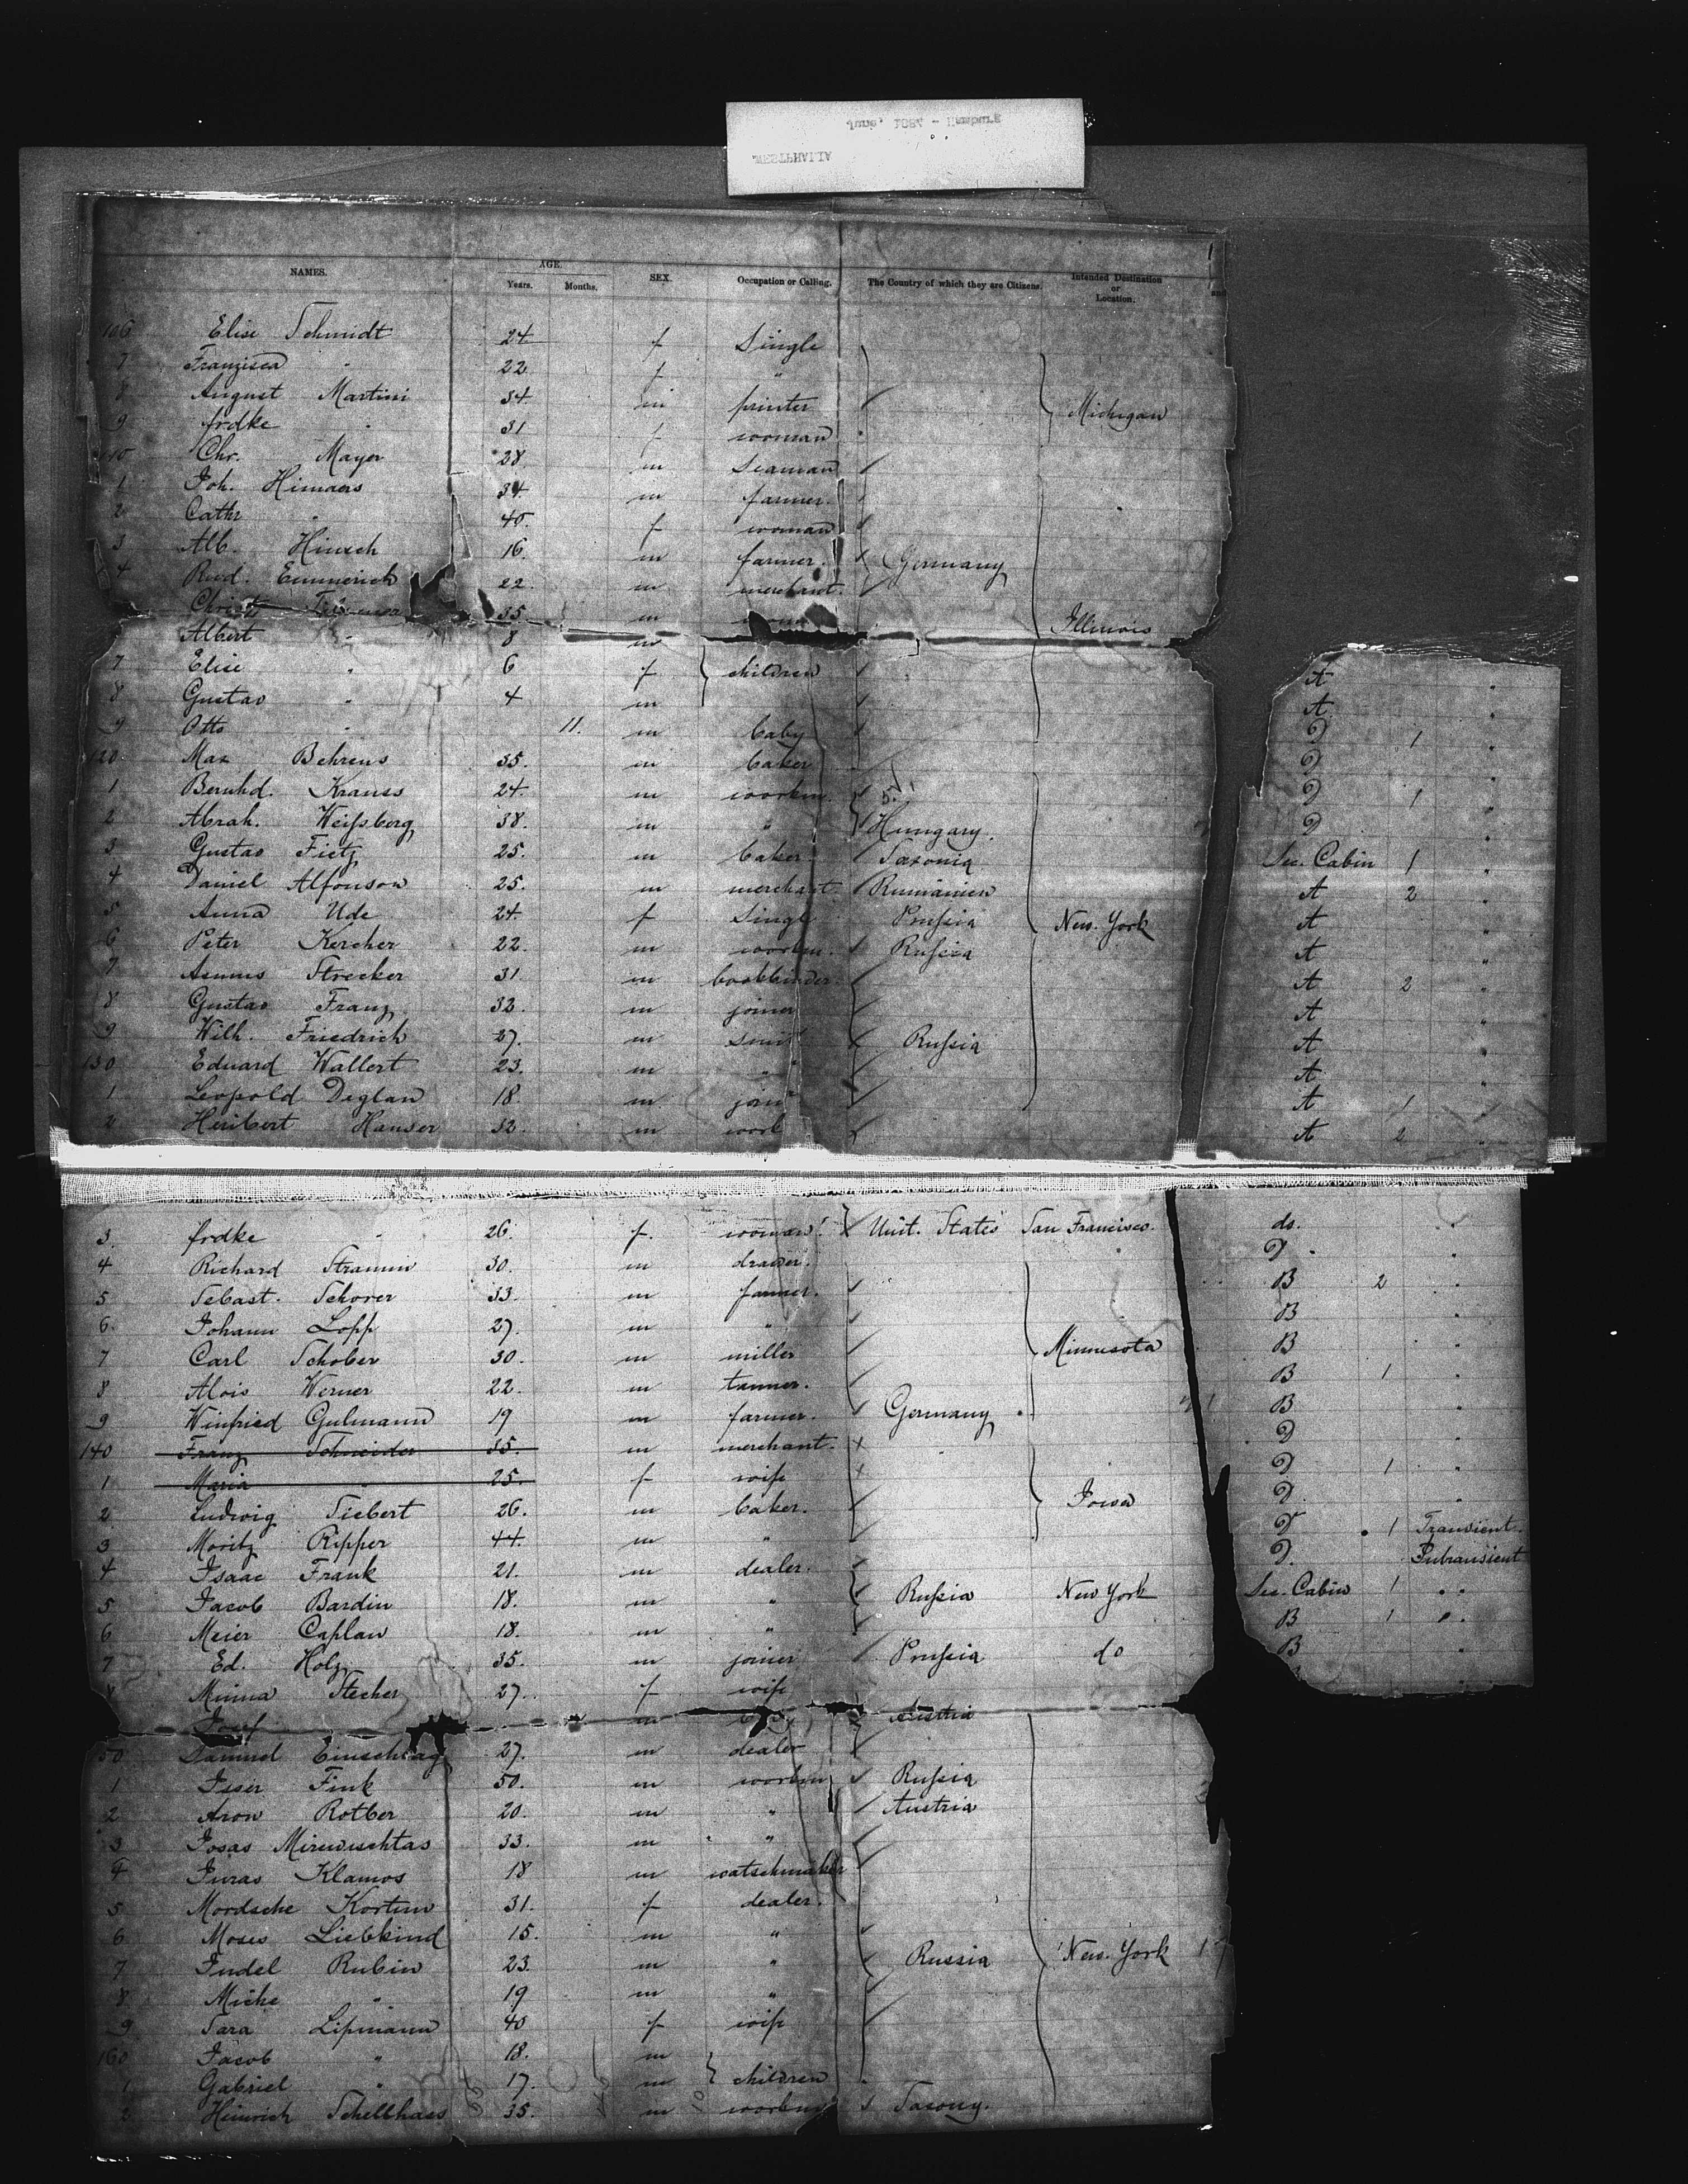 WESTPHALIA
June, 1887 - Hamburg
NAMES. AGE. Years. Months. SEX. Occupation or Calling. The Country of which they are Citizens. Intended Destination or Location.
106 Elise Schmidt 24 f Single
7 Franzisca " 22 f "
8 August Martini 34 m printer Michigan
9 frdke " 31 f woman
110 Chr. Mayer 28 m Seaman
1 Joh. Himaers 34 m farmer.
2 Cathr " 40 f woman
3 Alb. Hinsch 16. m farmer. Germany
4 Rud. Emmerich 22. m merchant.
35 m Illinois
Albert " 8 m
7 Elise " 6 f children A "
8 Gustav " 4 m A "
9 Otto " 11. m baby D 1 "
120 Max Behrens 35. m baker D "
1 Bernhd. Krauss 24. m workm. D 1 "
2 Abrah. Weissberg 38. m " Hungary. D "
3 Gustav Fietz 25. m baker Saxonia Sec. Cabin 1 "
4 Daniel Alfonson 25. m merchant Rumänien A 2 "
5 Anna Ude 24. f Single Prussia New. York A "
6 Peter Kercher 22. m workm. Russia A "
7 Asmus Strecker 31. m bookbinder A 2 "
8 Gustav Franz 32. m joiner A "
9 Wilh. Friedrich 27. m Russia A "
130 Eduard Wallert 23. m " A "
1 Leopold Deglan 18. m A 1 "
2 Heribert Hanser 32. m A 2 "
3. frdke " 26. f. woman Unit. States San Francisco. do. "
4 Richard Stramm 30. m drawer. D "
5 Sebast. Schorer 33. m farmer. B 2 "
6. Johann Lopp 27. m " B "
7 Carl Schober 30. m miller Minnesota B "
8 Alois Werner 22. m tanner. B 1 "
9 Winfried Gulmann 19 m farmer. Germany B "
140 Franz Schneider 35. m merchant. D
1 Maria " 25. f wife D 1 "
2 Ludwig Siebert 26. m baker. Iowa D "
3 Moritz Ripper 44. m " D 1 Transient.
4 Isaac Frank 21. m dealer. D. Intransient
5 Jacob Bardin 18. m " Russia New York Sec. Cabin 1 "
6 Meier Caplan 18. m " B 1 "
7 Ed. Holz 35. m joiner Prussia do B "
8 Minna Stecher 27. f wife
Josef m Austria
150 Samuel Einschlag 27. m dealer
1 Isser Fink 50. m workm Russia
2 Aron Rotber 20. m " Austria
3 Josas Mirewischtas 33. m "
4 Juras Klamos 18 m watschmaker
5 Mordsche Kortim 31. f dealer.
6 Moses Liebkind 15. m "
7 Judel Rubin 23. m " Russia New. York
8 Miche " 19 m "
9 Sara Lipmann 40 f wife
160 Jacob " 18. m
1 Gabriel " 17. m children
2 Heinrich Schellhaas 35. m workm Saxony.